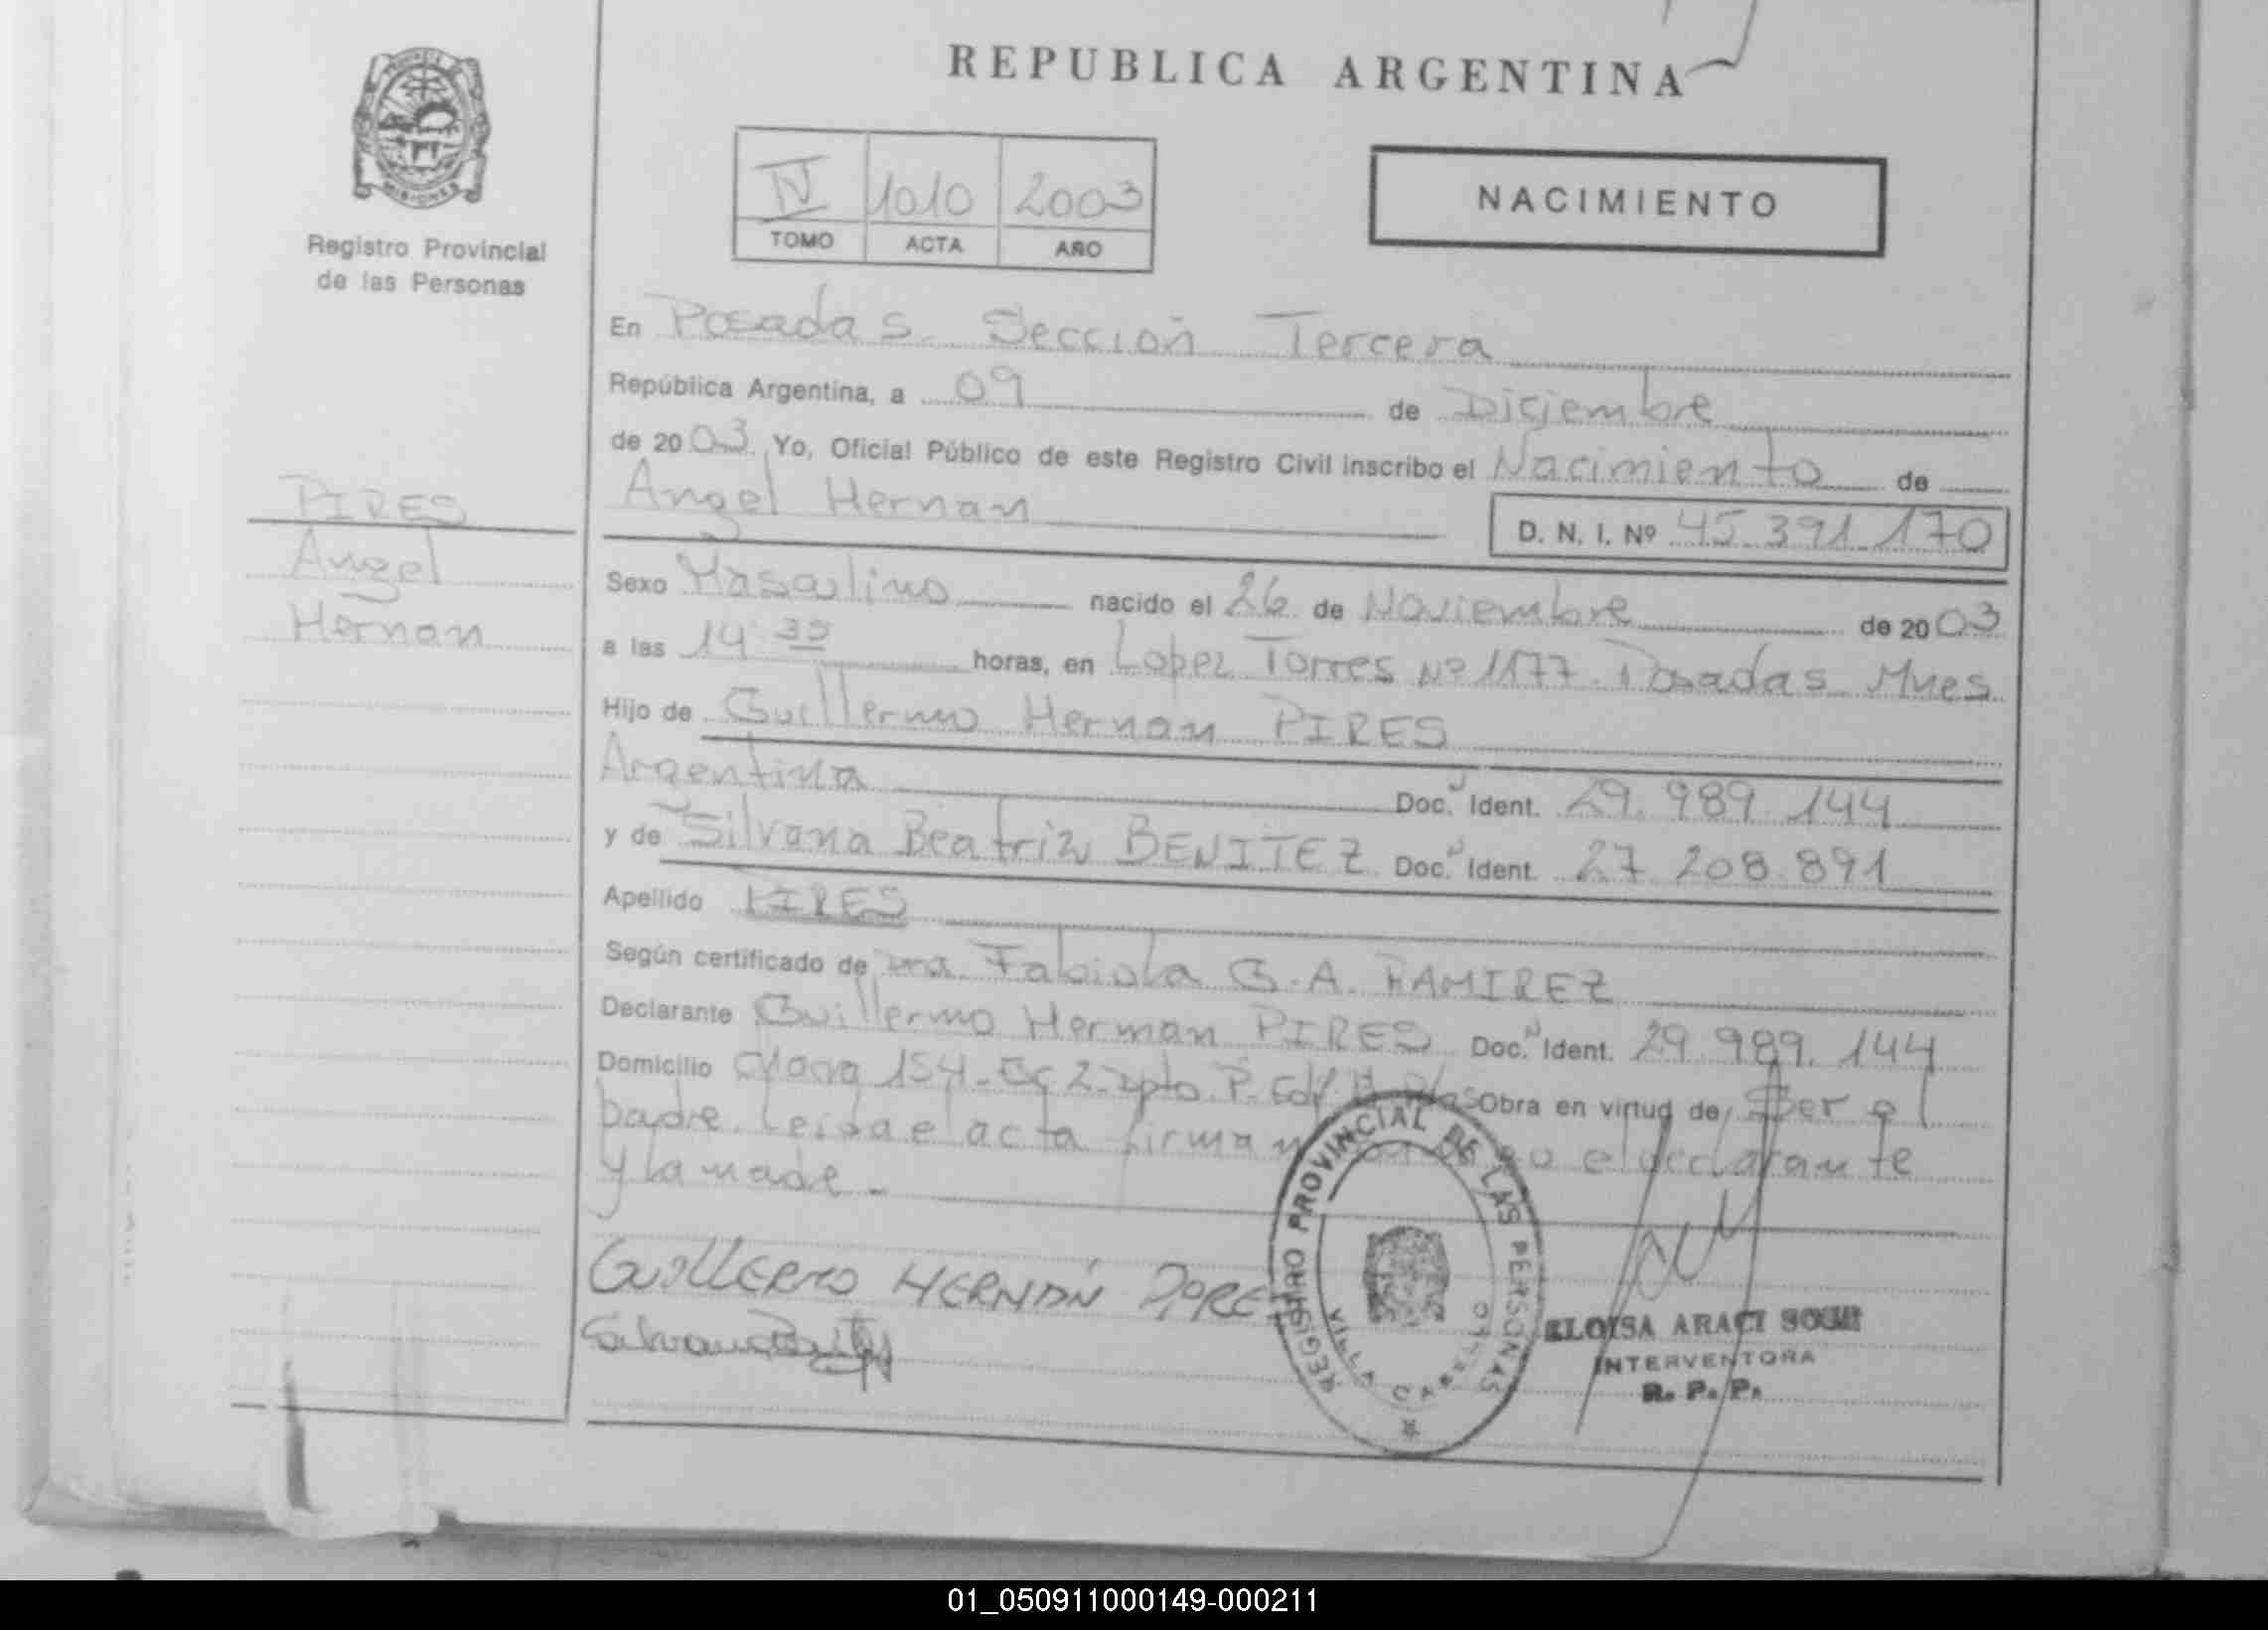 REPUBLICA ARGENTINA
MISIONES
Registro Provincial
de las Personas
IV 1010 2003
TOMO ACTA AÑO
NACIMIENTO
En Posadas. Sección Tercera
República Argentina, a 09 de Diciembre
de 2003. Yo, Oficial Público de este Registro Civil inscribo el Nacimiento de
PIRES
Angel
Hernan
Angel Hernan
D. N. I. Nº 45.391.170
Sexo Masculino nacido el 26 de Noviembre de 2003
a las 14 horas, en Lopez Torres Nº 1177. Posadas Mnes
Hijo de Guillermo Hernan PIRES
Argentina Doc. Ident. 29.989.144
y de Silvana Beatriz BENITEZ Doc. Ident. 27.208.891
Apellido PIRES
Según certificado de Dra. Fabiola G. A. RAMIREZ
Declarante Guillermo Hernan PIRES Doc. Ident. 29.989.144
Domicilio 154 Obra en virtud de Ser el
padre. Leida el acta firman el declarante
y la madre.-
GUILLERMO HERNÁN PIRE
REGISTRO PROVINCIAL DE LAS PERSONAS
VILLA CABELLO
ELOISA ARACI
INTERVENTORA
R. P. P.
01_050911000149-000211